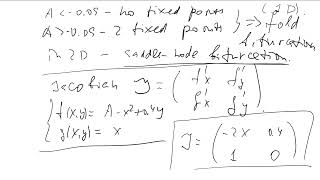 A < -0.05 - no fixed points
A > -0.05 - 2 fixed points } => fold (1 D)
bifurcation
in 2D - saddle-node bifurcation.
Jacobian J = ( f'x f'y
g'x g'y )
{ f(x,y) = A - x² + 0.4y
g(x,y) = x
J = ( -2x 0.4
1 0 )